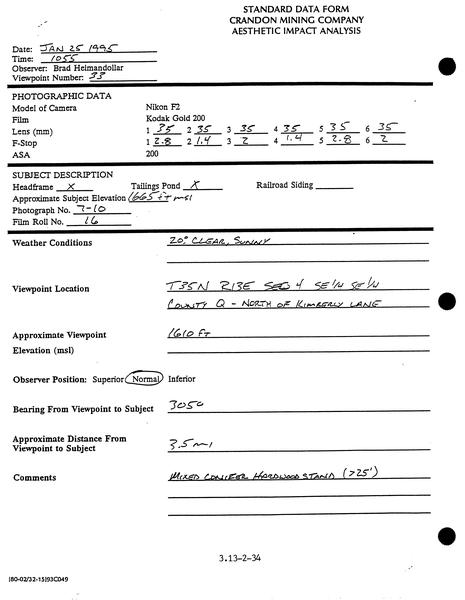 STANDARD DATA FORM
CRANDON MINING COMPANY
AESTHETIC IMPACT ANALYSIS
Date: JAN 25 1995
Time: 1055
Observer: Brad Heimandollar
Viewpoint Number: 33
PHOTOGRAPHIC DATA
Model of Camera Nikon F2
Film Kodak Gold 200
Lens (mm) 1 35 2 35 3 35 4 35 5 35 6 35
F-Stop 1 2.8 2 1.4 3 2 4 1.4 5 2.8 6 2
ASA 200
SUBJECT DESCRIPTION
Headframe X Tailings Pond X Railroad Siding
Approximate Subject Elevation 1665 ft msl
Photograph No. 7-10
Film Roll No. 16
Weather Conditions 20° CLEAR, SUNNY
Viewpoint Location T35N R13E SEC 4 SE¼ SE¼
COUNTY Q - NORTH OF KIMBERLY LANE
Approximate Viewpoint 1610 FT
Elevation (msl)
Observer Position: Superior Normal Inferior
Bearing From Viewpoint to Subject 305°
Approximate Distance From
Viewpoint to Subject 3.5 mi
Comments MIXED CONIFER HARDWOOD STAND (>25')
3.13-2-34
180-02/32-15193C049